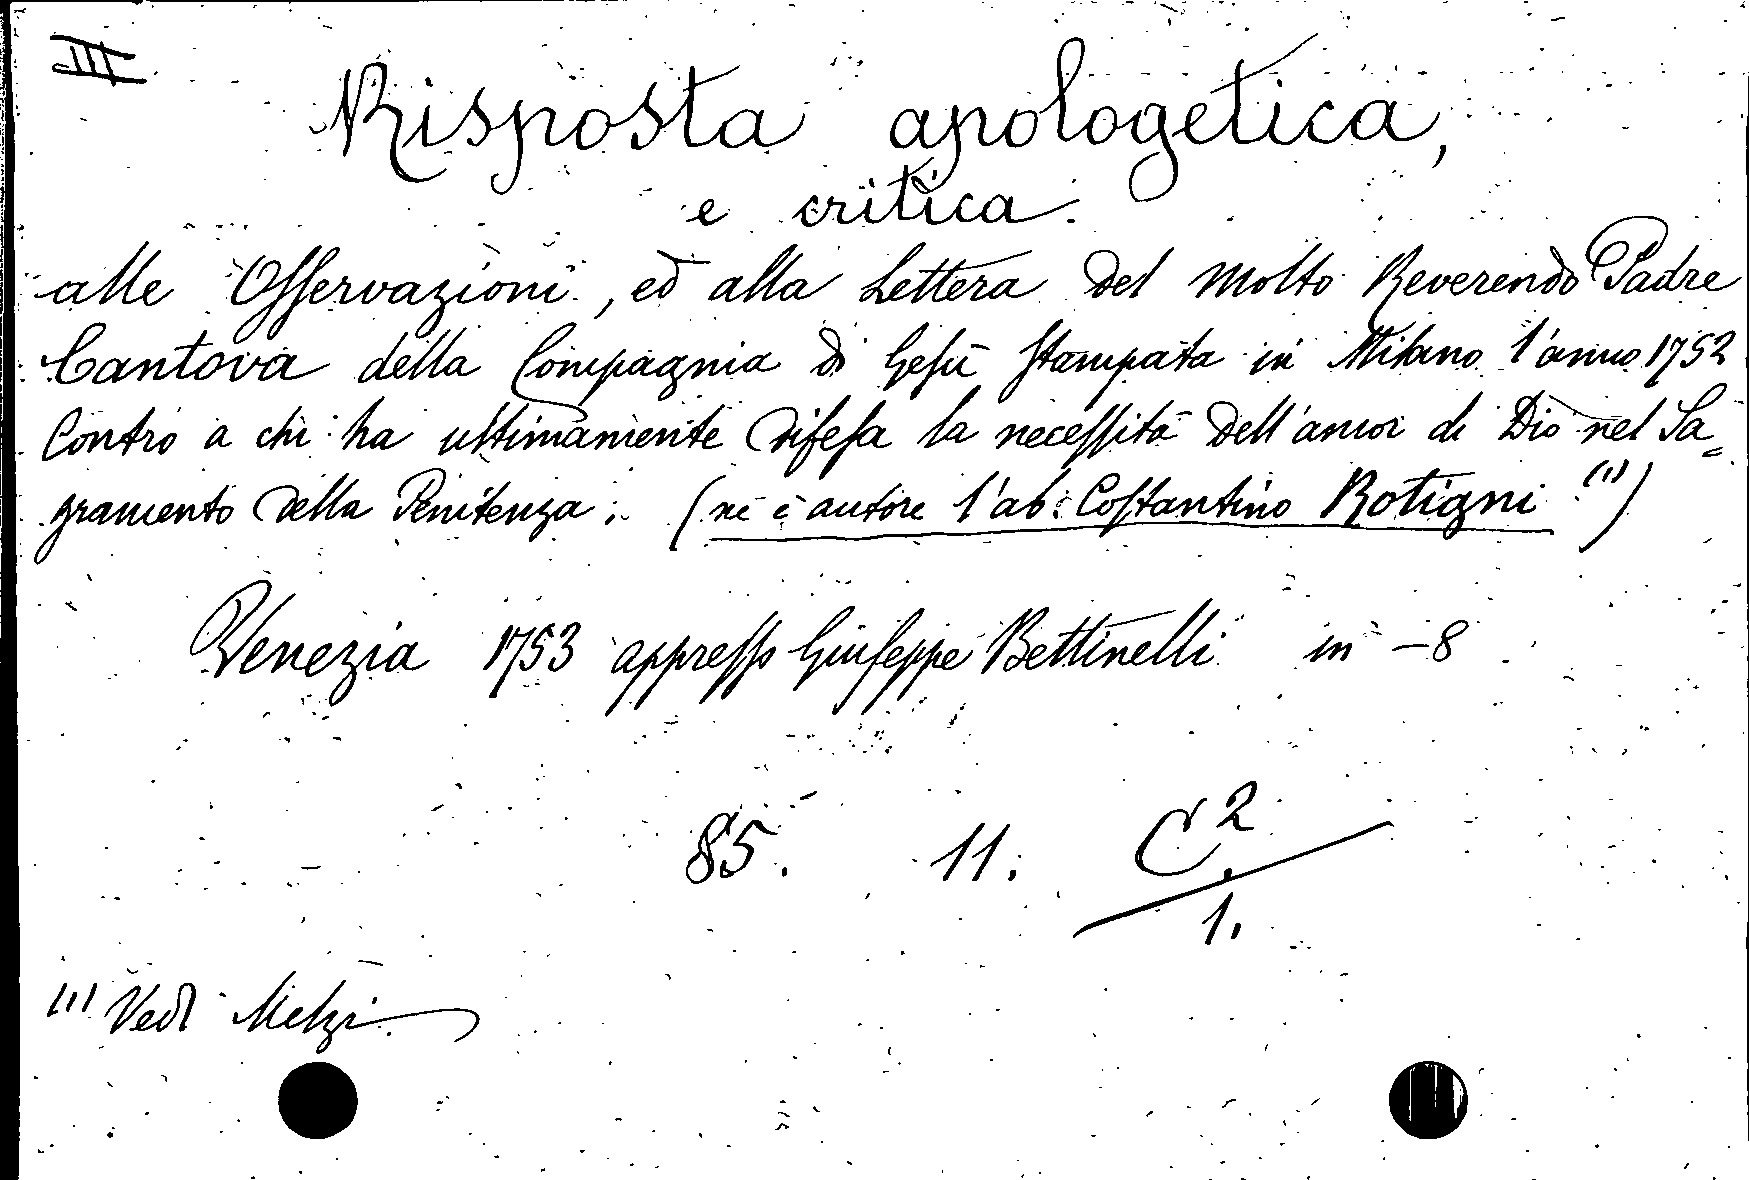 III
Risposta apologetica,
e critica.
alle Oſservazioni, ed alla Lettera del Molto Reverendo Padre
Cantova della Compagnia di Geſù Stampata in Milano l'anno 1752
Contro a chi ha ultimamente difeſa la neceſsità dell'amor di Dio nel Sa=
gramento della Penitenza. (ne è autore l'ab: Coſtantino Rotigni (1))
Venezia 1753 appreſso Giuſeppe Bettinelli in -8
85. 11. C2.
1.
(1) Vedi Melzi